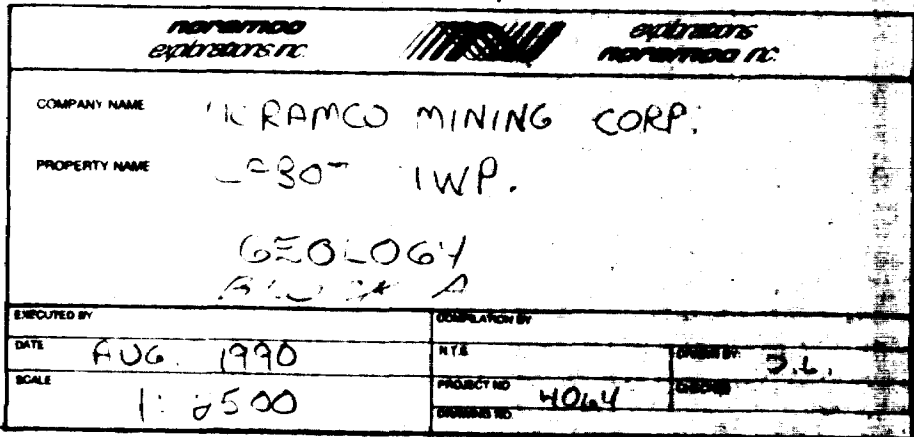 noramco explorations inc. explorations noramco inc.
COMPANY NAME MINING CORP.
PROPERTY NAME TWP.
GEOLOGY
EXECUTED BY COMPILATION BY
DATE AUG. 1990 N.T.S. DRAWN BY: J.L.
SCALE 1: 2500 PROJECT NO 4064 CHECKED
DRAWING NO.